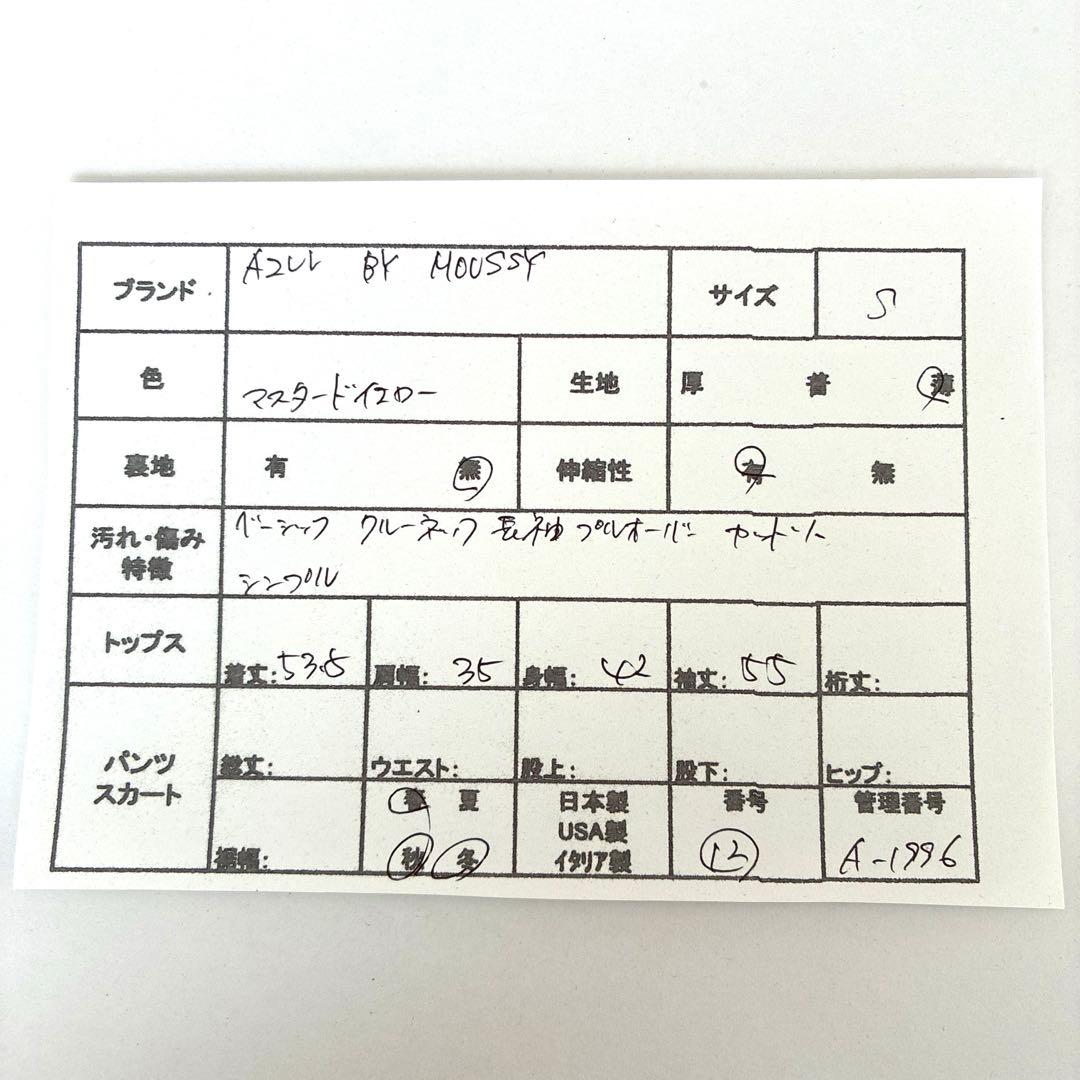 ブランド AZUL BY MOUSSY サイズ S
色 マスタードイエロー 生地 厚 普 薄
裏地 有 無 伸縮性 有 無
汚れ・傷み
特徴
ベーシック クルーネック 長袖 プルオーバー カットソー
シンプル
トップス 着丈:53.5 肩幅: 35 身幅: 42 袖丈: 55 裄丈:
パンツ
スカート
総丈: ウエスト: 股上: 股下: ヒップ:
裾幅: 春 夏
秋 冬
日本製
USA製
イタリア製
番号
12
管理番号
A-1996